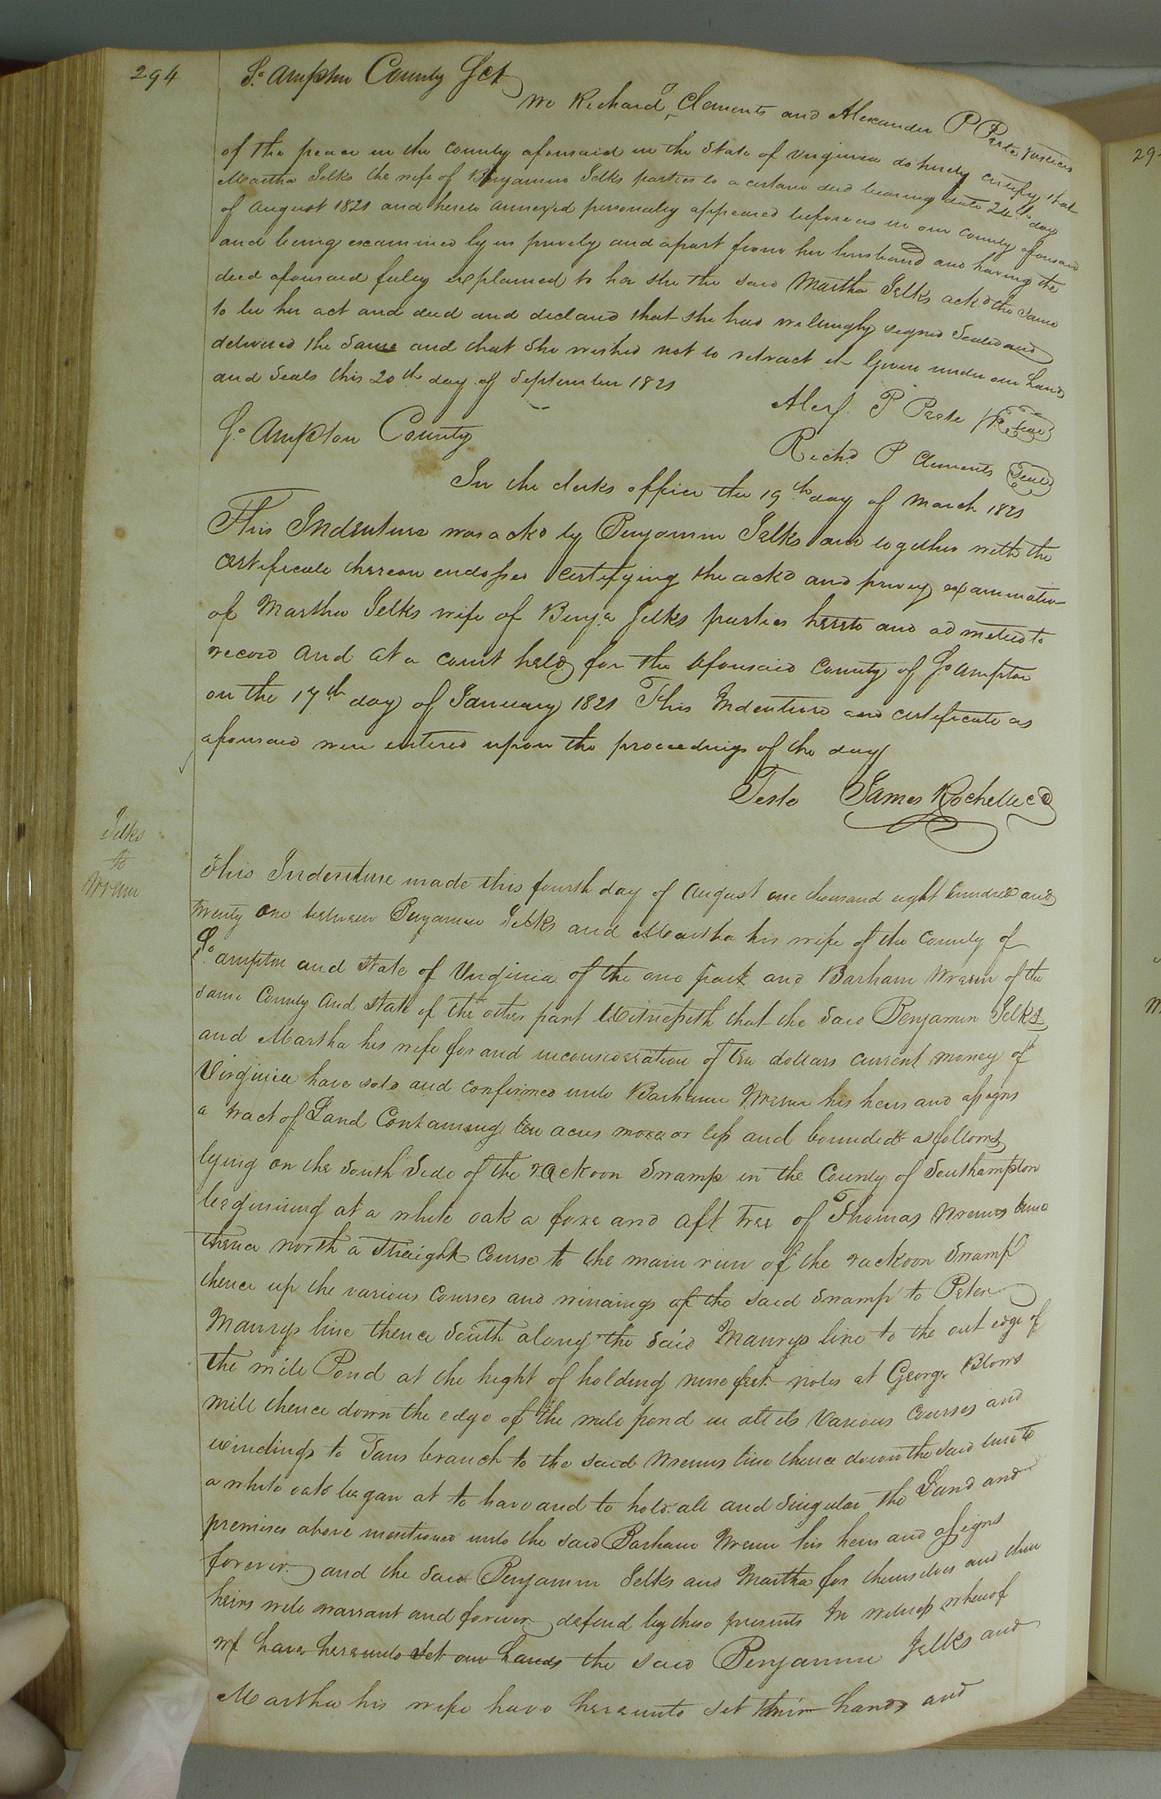 294
So. Ampton County Sct
We Richard P Clements and Alexander P Peete Justices
of the peace in the County aforesaid in the State of Virginia do hereby certify that
Martha Jelks the wife of Benjamin Jelks parties to a certain deed bearing date 24th day
of August 1821 and hereto annexed personally appeared before us in our County aforesaid
and being examined by us privily and apart from her husband and having the
deed aforesaid fully explained to her she the said Martha Jelks ackd the same
to be her act and deed and declared that she had willingly signed Sealed and
delivered the Same and that She wished not to retract it Given under our hands
and Seals this 20th day of September 1821
Alexr. P Peete Seal
So. Ampton County
Richd P Clements Seal
In the clerks office the 19th day of March 1821
This Indenture was ackd by Benjamin Jelks and together with the
Certificate thereon endorsed certifying the ackd and privy examination
of Martha Jelks wife of Benja Jelks parties hereto and admitted to
record and at a court held for the aforesaid County of So. ampton
on the 17th day of January 1821 This Indenture and certificate as
aforesaid were entered upon the proceedings of the day
Teste James Rochelle CC
Jelks
to
Wrenn
This Indenture made this fourth day of August one thousand eight hundred and
twenty one between Benjamin Jelks and Martha his wife of the County of
So. ampton and state of Virginia of the one part and Barham Wrenn of the
same County and state of the other part Witnesseth that the said Benjamin Jelks
and Martha his wife for and inconsideration of ten dollars current money of
Virginia have sold and confirmed unto Barham Wrenn his heirs and assigns
a tract of Land Containing ten acres more or less and bounded as follows
lying on the South Side of the rackoon Swamp in the County of Southampton
beginning at a white oak a fore and aft tree of Thomas Wrenns line
thence north a straight Course to the main run of the rackoon Swamp
thence up the various Courses and windings of the said Swamp to Peter
Maurys line thence South along the said Maurys line to the out edge of
the mill Pond at the hight of holding nine feet at George Blows
mill thence down the edge of the mill pond in all its Various Courses and
windings to branch to the said Wrenns line thence down the said line to
a white oak began at to have and to hold all and Singular the Land and
premises above mentioned unto the said Barham Wrenn his heirs and assigns
forever and the said Benjamin Jelks and Martha for themselves and their
heirs will warrant and forever defend by these presents In witness whereof
we have hereunto set our hands the said Benjamin Jelks and
Martha his wife have hereunto set their hands and